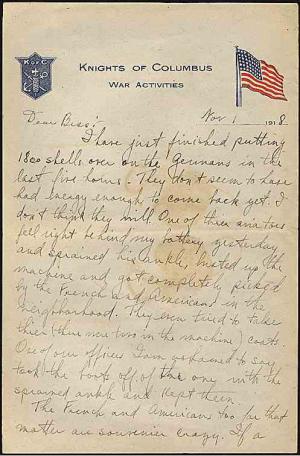 K of C
KNIGHTS OF COLUMBUS
WAR ACTIVITIES
Nov 1 1918
Dear Bess:
I have just finished putting
1800 shells over on the Germans in the
last five hours. They don't seem to have
had energy enough to come back yet. I
don't think they will. One of their aviators
fell right behind my battery yesterday
and sprained his ankle, busted up the
machine and got completely picked
by the French and Americans in the
neighborhood. They even tried to take
their (there were two in the machine) coats.
One of our officers I am ashamed to say
took the boots off of the one with the
sprained ankle and kept them.
The French and Americans too for that
matter are souvenir crazy. If a